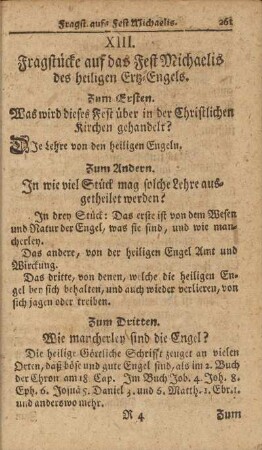 Fragst. aufs Fest Michaelis. 261
XIII.
Fragstücke auf das Fest Michaelis
des heiligen Ertz-Engels.
Zum Ersten.
Was wird dieses Fest über in der Christlichen
Kirchen gehandelt?
Die Lehre von den heiligen Engeln.
Zum Andern.
In wie viel Stück mag solche Lehre aus-
getheilet werden?
In drey Stück: Das erste ist von dem Wesen
und Natur der Engel, was sie sind, und wie man-
cherley.
Das andere, von der heiligen Engel Amt und
Würckung.
Das dritte, von denen, welche die heiligen En-
gel bey sich behalten, und auch wieder verlieren, von
sich jagen oder treiben.
Zum Dritten.
Wie mancherley sind die Engel?
Die heilige Göttliche Schrifft zeuget an vielen
Orten, daß böse und gute Engel sind, als im 2. Buch
der Chron am 18. Cap. Im Buch Job. 4. Joh. 8.
Eph. 6. Josuä 5. Daniel 3. und 6. Matth. 1. Ebr. 1.
und anderswo mehr.
R 4 Zum